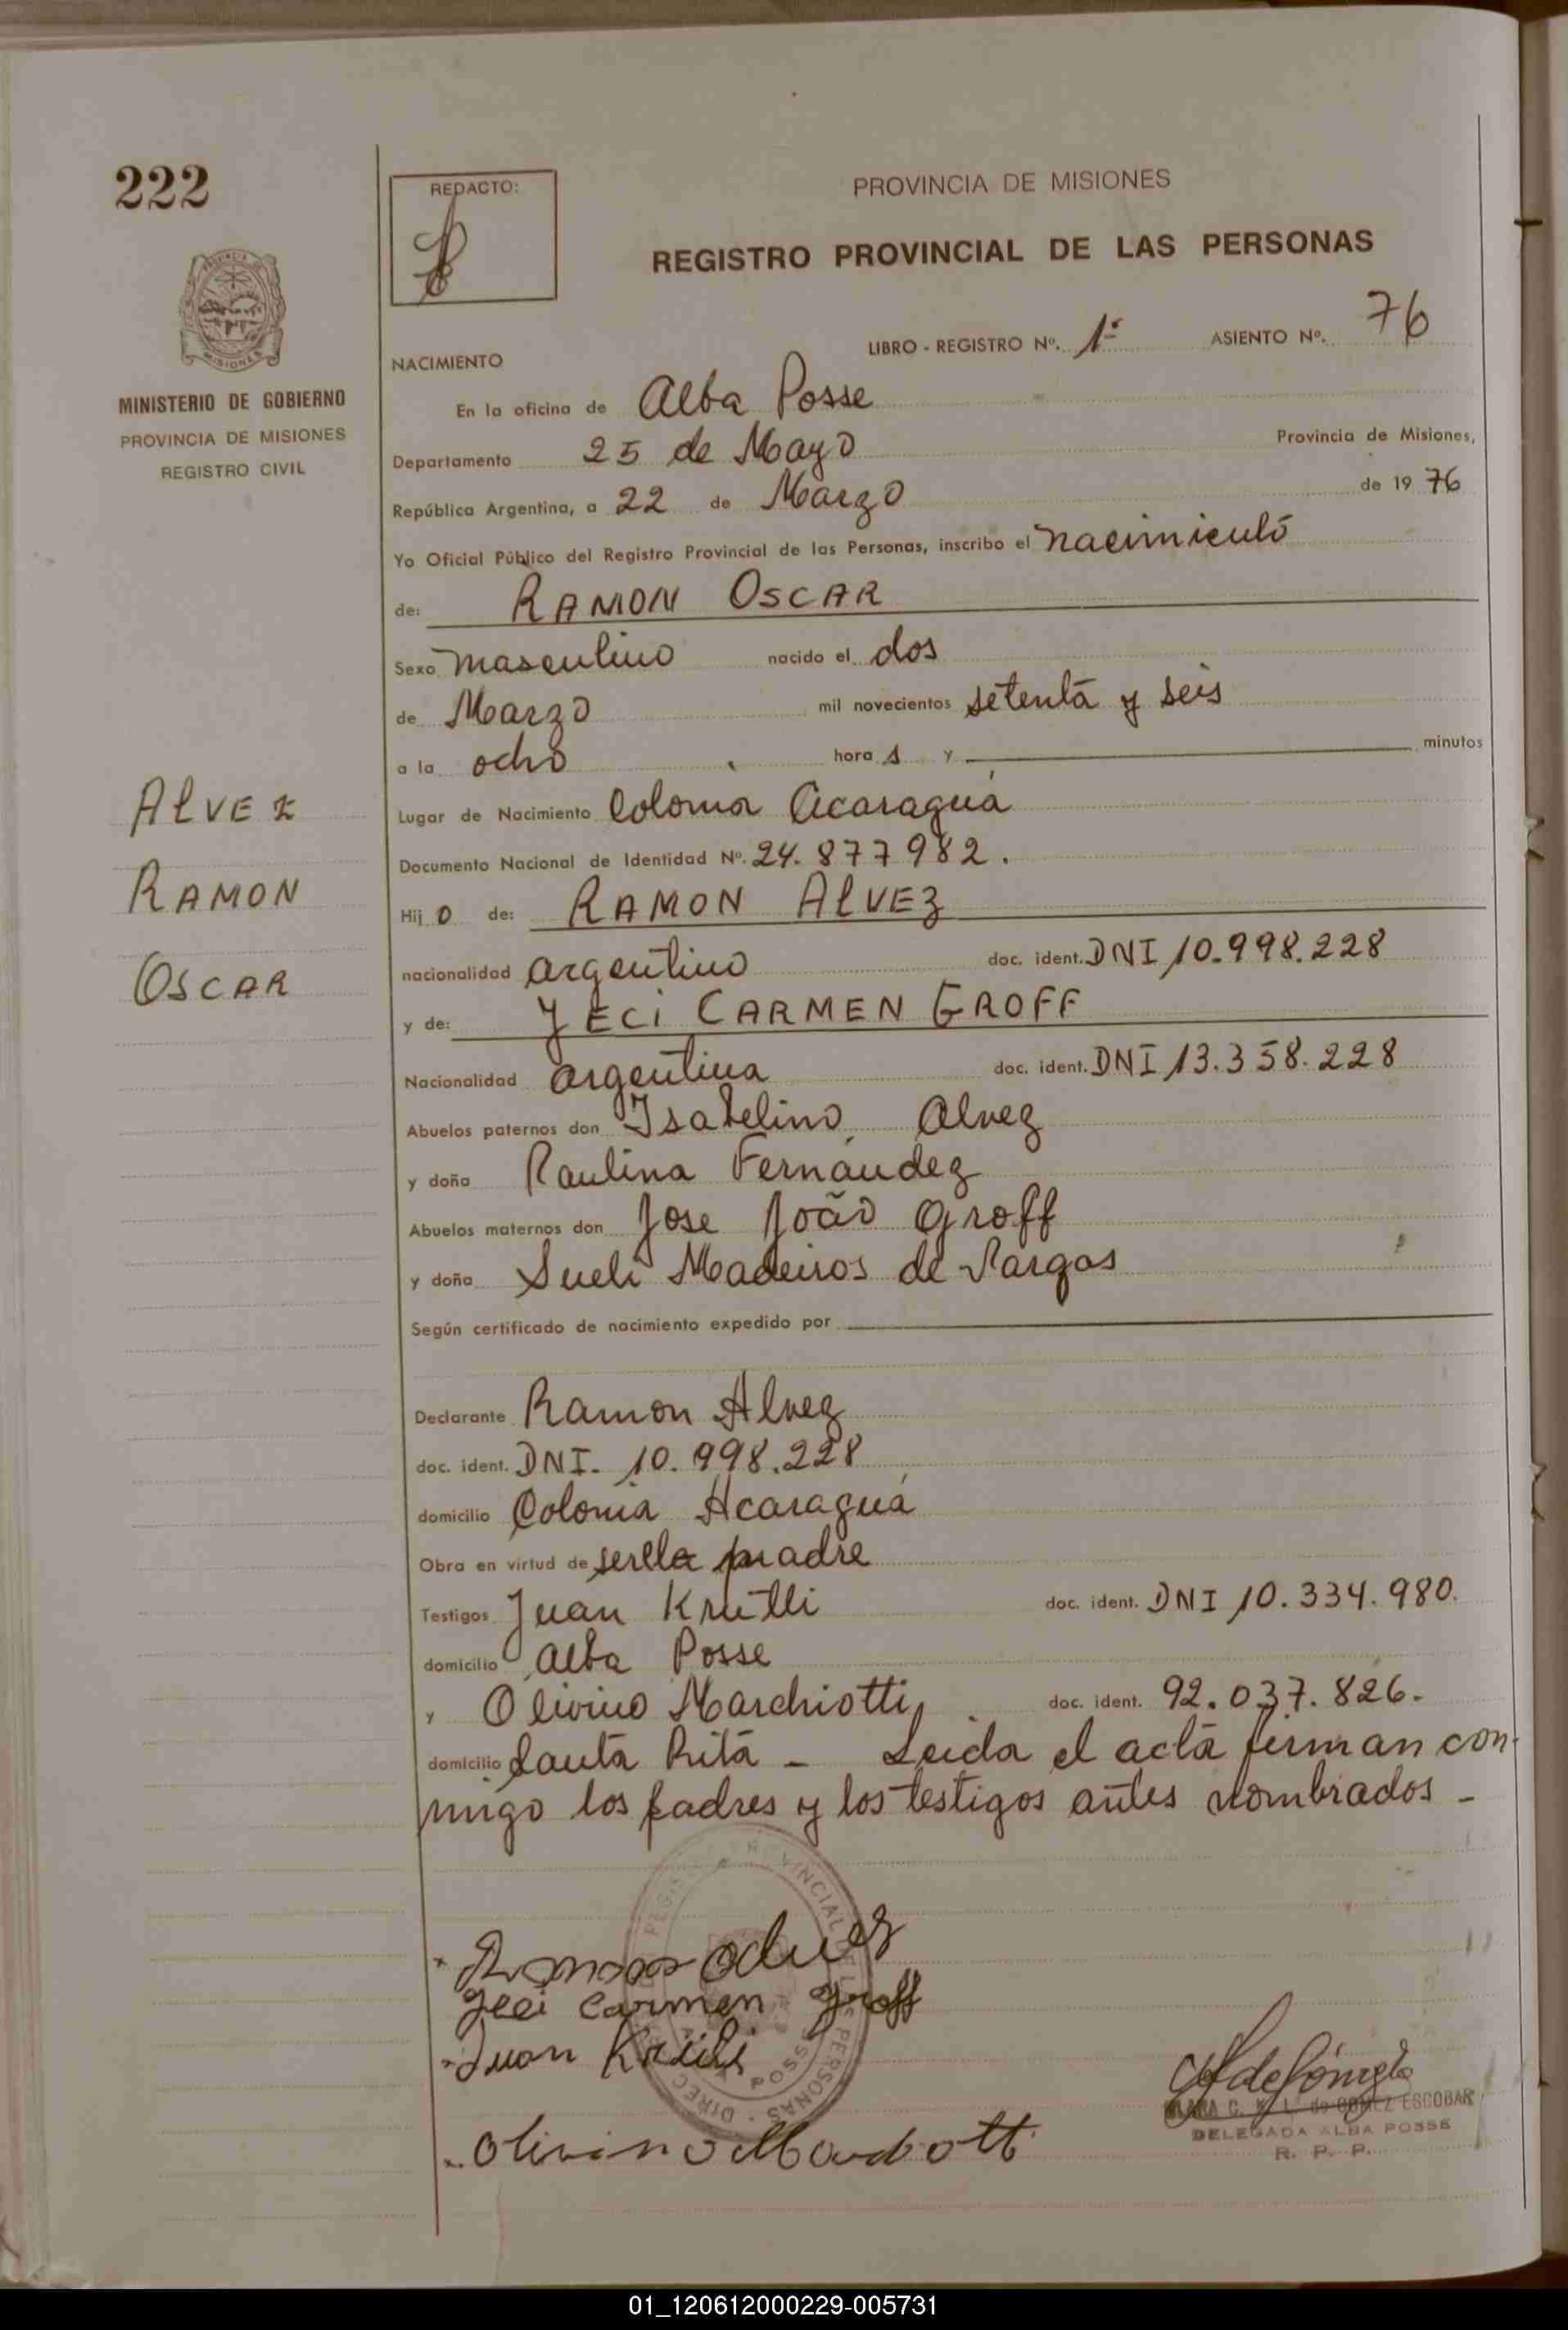 222
REDACTO:
PROVINCIA DE MISIONES
REGISTRO PROVINCIAL DE LAS PERSONAS
MINISTERIO DE GOBIERNO
PROVINCIA DE MISIONES
REGISTRO CIVIL
LIBRO - REGISTRO Nº. 1º ASIENTO Nº. 76
NACIMIENTO
En la oficina de Alba Posse
Departamento 25 de Mayo Provincia de Misiones,
República Argentina, a 22 de Marzo de 19 76
Yo Oficial Público del Registro Provincial de las Personas, inscribo el nacimiento
de: RAMON OSCAR
Sexo masculino nacido el dos
de Marzo mil novecientos setenta y seis
a la ocho hora s y minutos
ALVEZ
RAMON
OSCAR
Lugar de Nacimiento Colonia Acaraguá
Documento Nacional de Identidad Nº. 24.877982.
Hij o de: RAMON ALVEZ
nacionalidad argentino doc. ident. DNI 10.998.228
y de: YECI CARMEN GROFF
Nacionalidad argentina doc. ident. DNI 13.358.228
Abuelos paternos don Isabelino Alvez
y doña Paulina Fernández
Abuelos maternos don Jose João Groff
y doña Sueli Madeiros de Vargas
Según certificado de nacimiento expedido por
Declarante Ramon Alvez
doc. ident. DNI. 10.998.228
domicilio Colonia Acaraguá
Obra en virtud de madre
Testigos Juan Krutli doc. ident. DNI 10.334.980.
domicilio Alba Posse
y Olivino Marchiotti doc. ident. 92.037.826.
domicilio Santa Rita - Leida el acta firman con-
migo los padres y los testigos antes nombrados -
Ramon Alvez
Yeci Carmen Groff
Juan
Olivino
CLARA C. K. L. de GOMEZ ESCOBAR
DELEGADA ALBA POSSE
R. P. P.
01_120612000229-005731